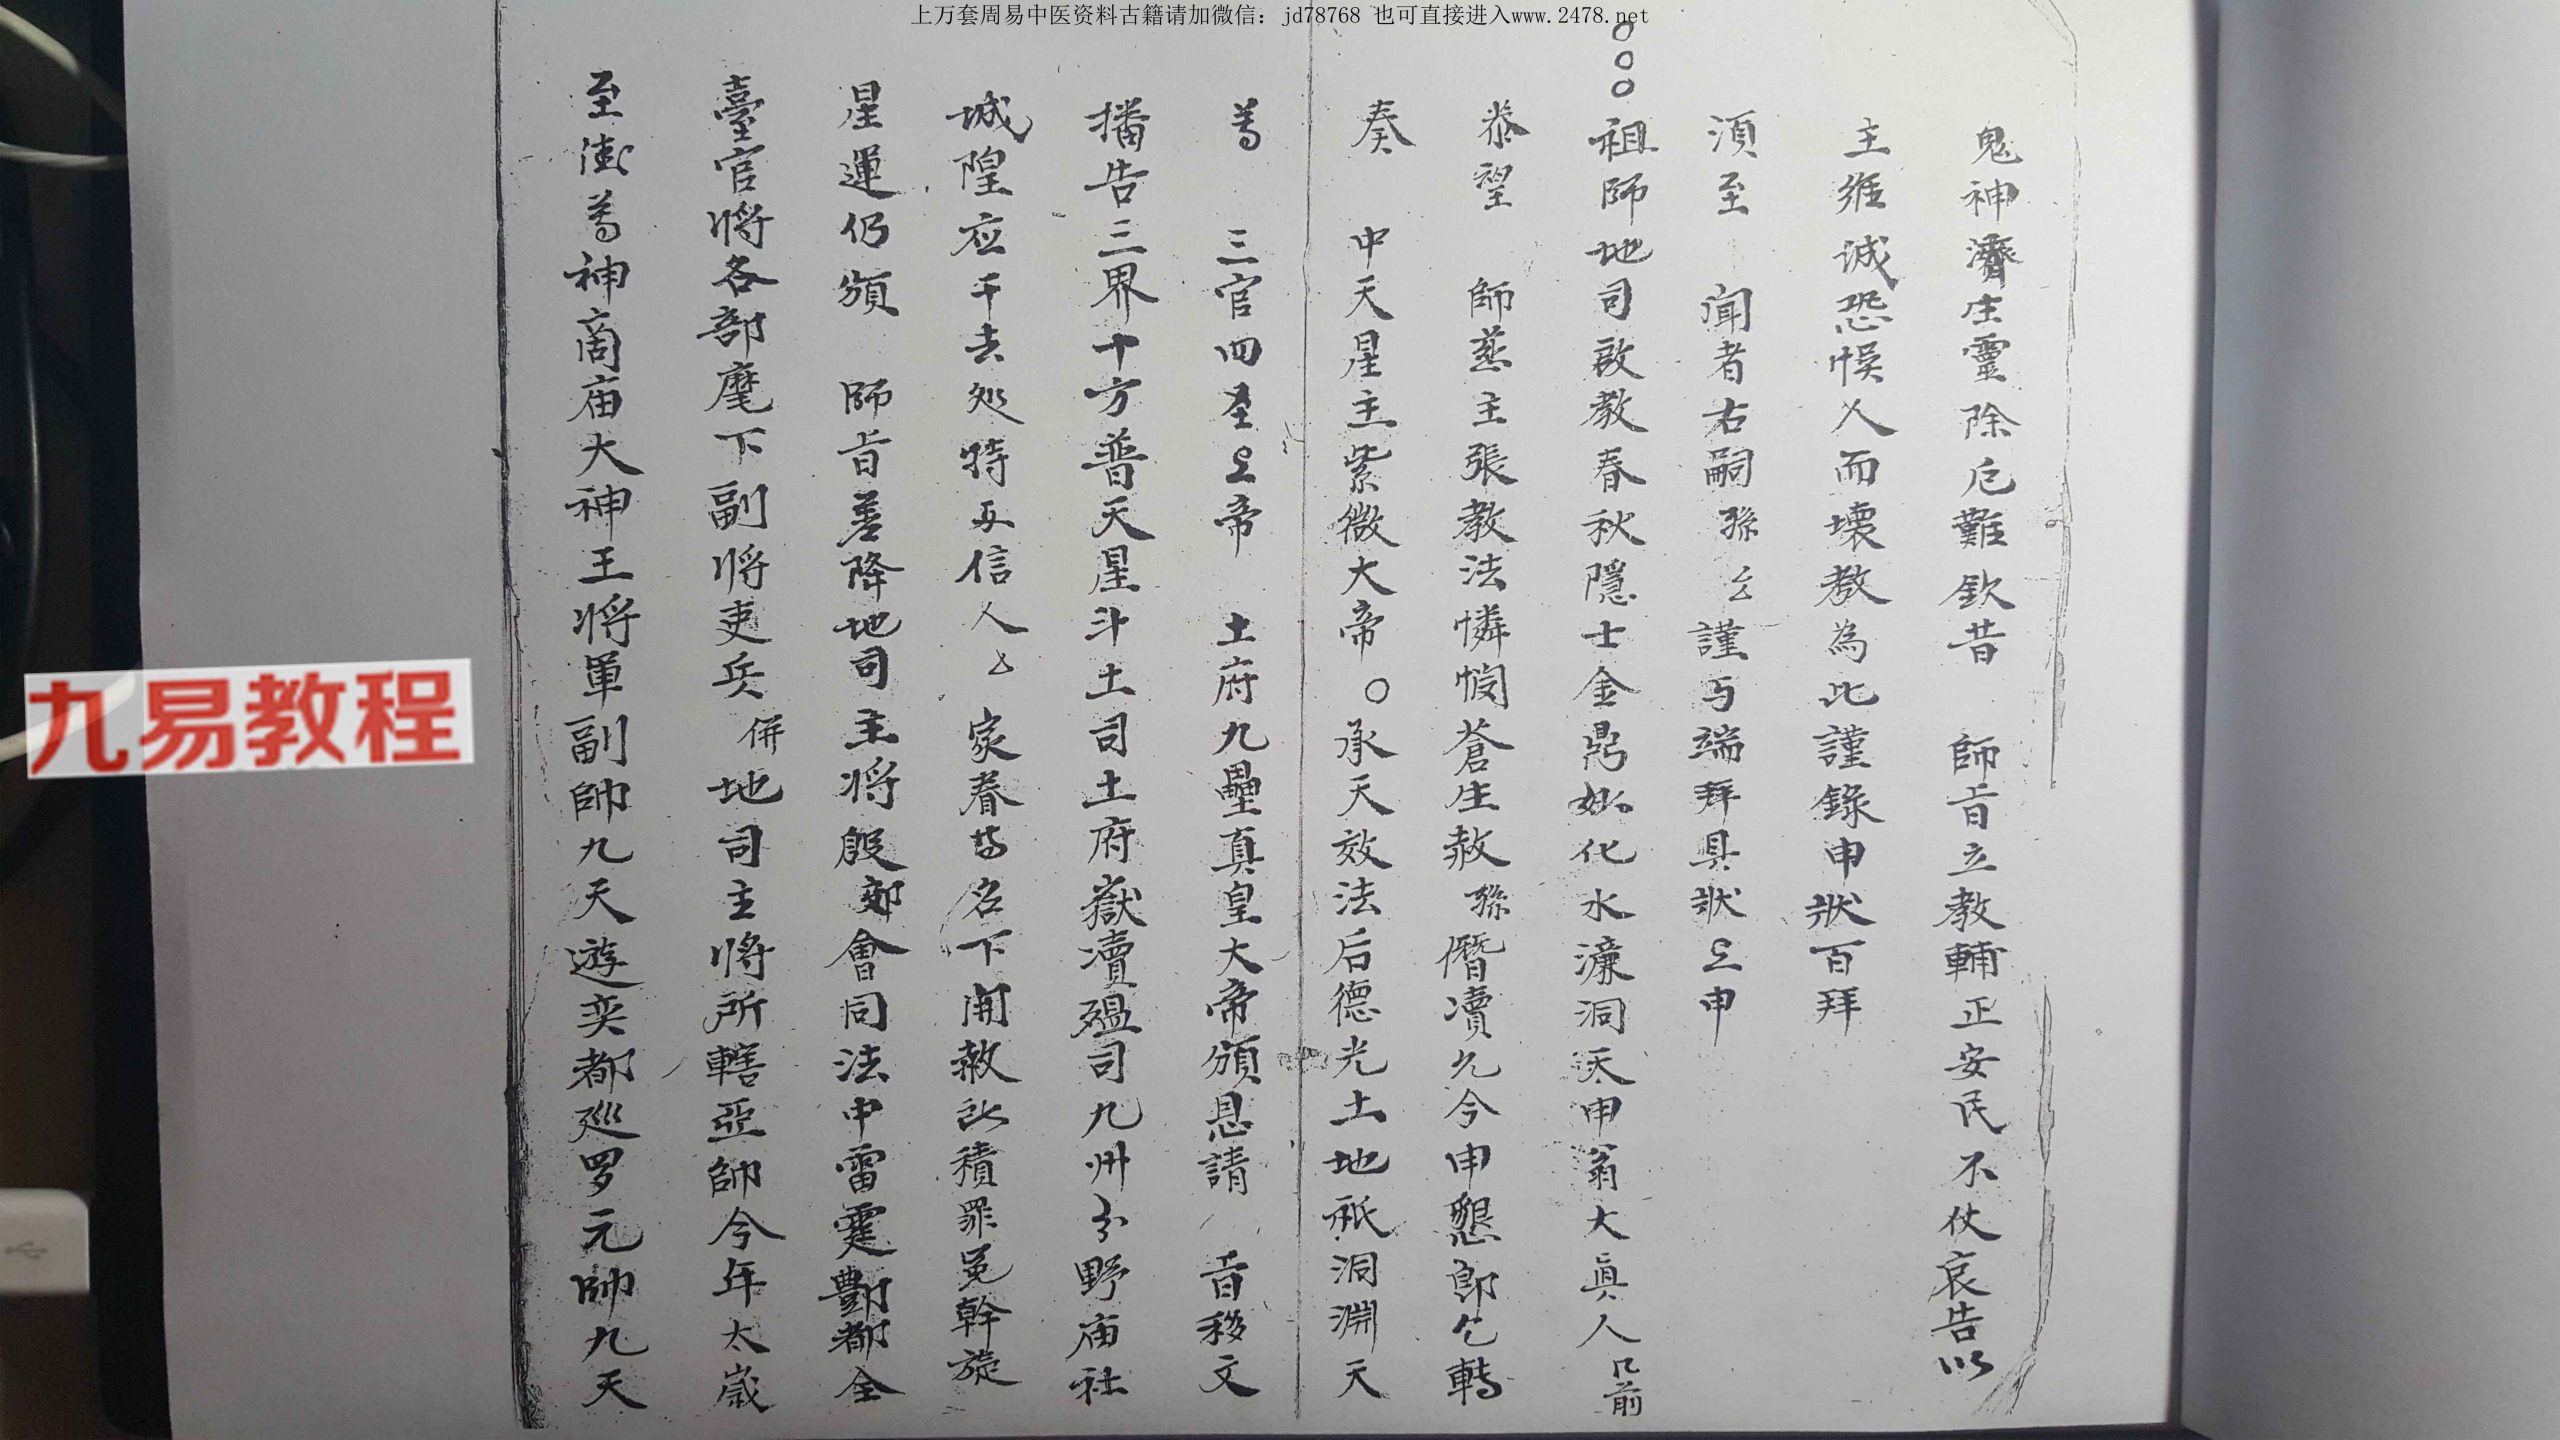 上万套周易中医资料古籍请加微信：jd78768 也可直接进入www.2478.net
鬼神濟生靈除厄難欽昔 師旨立教輔正安民不仗哀告以
主維誠恐悞人而壞教為此謹錄申狀百拜
須至 闻者右嗣孫 謹与端拜具狀上申
○○○祖師地司啟教春秋隱士金鼎妙化水濂洞天申翁大真人几前
恭望 師慈主張教法憐憫蒼生赦孫僭瀆允今申懇即乞轉
奏 中天星主紫微大帝○承天效法后德光土地祇洞淵天
等 三官四圣上帝 土府九壘真皇大帝頒恳請 旨移文
播告三界十方普天星斗土司土府嶽瀆瘟司九州分野庙社
城隍应干去处特与信人 家眷等名下開赦 積罪冤幹旋
星運仍頒 師旨差降地司主将殷郊會同法中雷霆酆都全
臺官将各部麾下副将吏兵併地司主将所轄亞帥今年太歲
至 等神商庙大神王将軍副帥九天遊奕都巡罗元帥九天
九易教程